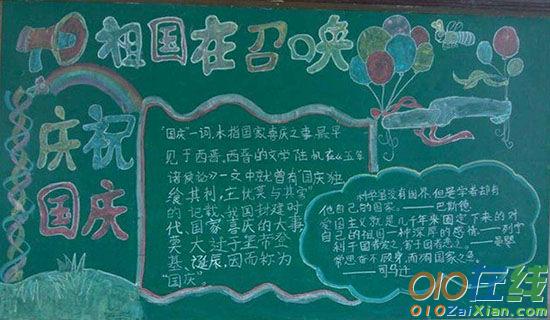 祖国在召唤
庆祝
国庆
"国庆"一词,本指国家喜庆之事,最早
见于西晋,西晋的文学陆机在《五年
诸侯论》一文中就曾有"国庆独
飨其利,主忧莫与其害"
的记载,我国封建时
代、国家喜庆的大事
莫大过于皇帝登
基、诞辰,因而称为
"国庆"。
科学虽没有国界,但是学者却有
他自己的国家。——巴斯德
爱国主义就是几千年来固定下来的对
自己的祖国一种深厚的感情。——列宁
利于国者爱之,害于国者恶之。——晏婴
常思奋不顾身,而殉国家之急。
——司马迁
010在线
010ZaiXian.com